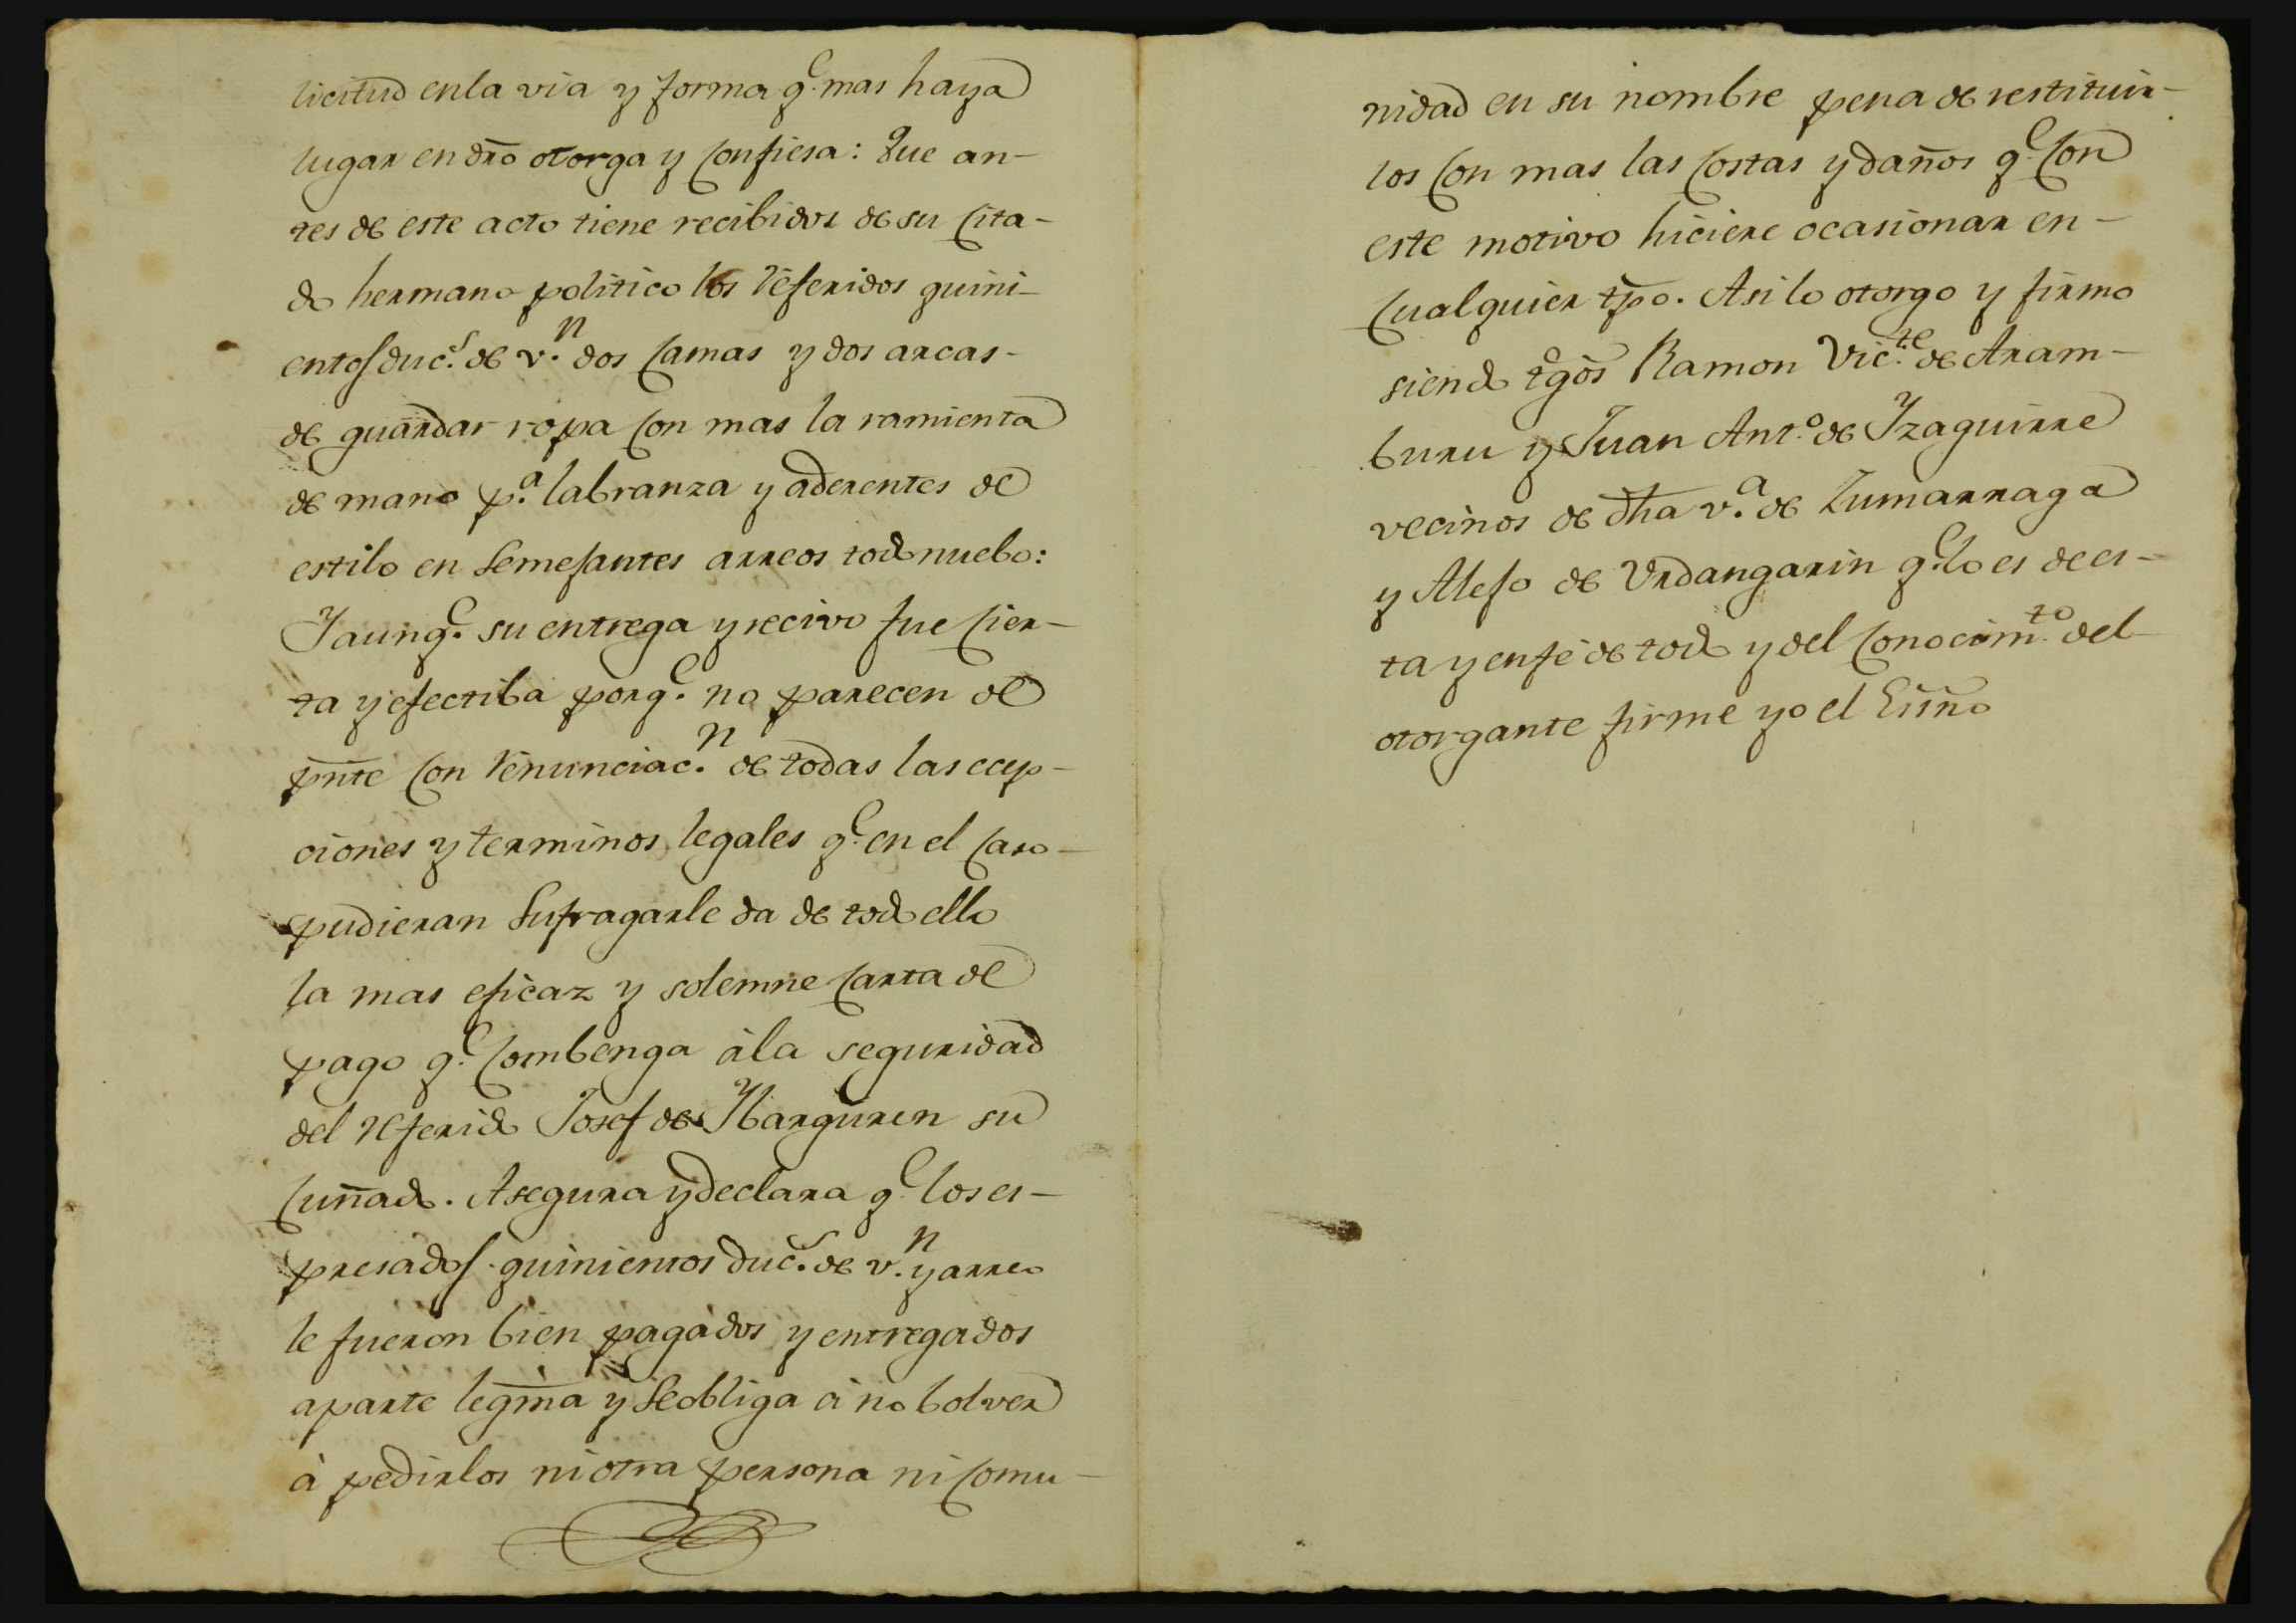 licitud enla via y forma q.e mas haya
lugar en dr̃o otorga y confiesa: Que an-
tes de este acto tiene recibidos de su cita-
do hermano politico los referidos quini-
entos duc.s de v.n dos camas y dos arcas-
de guardar ropa con mas la ramienta
de mano p.a labranza y aderentes de
estilo en semejantes arreos todo nuebo:
Yaunq.e su entrega y recivo fue cier-
ta y efectiba porq.e no parecen de
pñte con renunciac.n de todas las ecep-
ciones y terminos legales q.e en el caso-
pudieran sufragarle da de todo ello
la mas eficaz y solemne carta de
pago q.e combenga àla seguridad
del referido Josef de Ybarguren su
cuñado. Asegura y declara q.e los es-
presados quinientos duc.s de v.n y arreo
le fueron bien pagados y entregados
aparte legm̃a y se obliga à no bolver
à pedirlos ni otra persona ni comu-
nidad en su nombre pena de restituir-
los con mas las costas y daños q.e con
este motivo hiciere ocasionar en-
cualquier tp̃o. Asi lo otorgo y firmo
siendo tgõs Ramon Vic.te de Aram-
buru y Juan Ant.o de Yzaguirre
vecinos de dha v.a de Zumarraga
y Alejo de Urdangarin q.e lo es de es-
ta y enfé de todo y del conocim.to del
otorgante firme yo el Essñ̃o